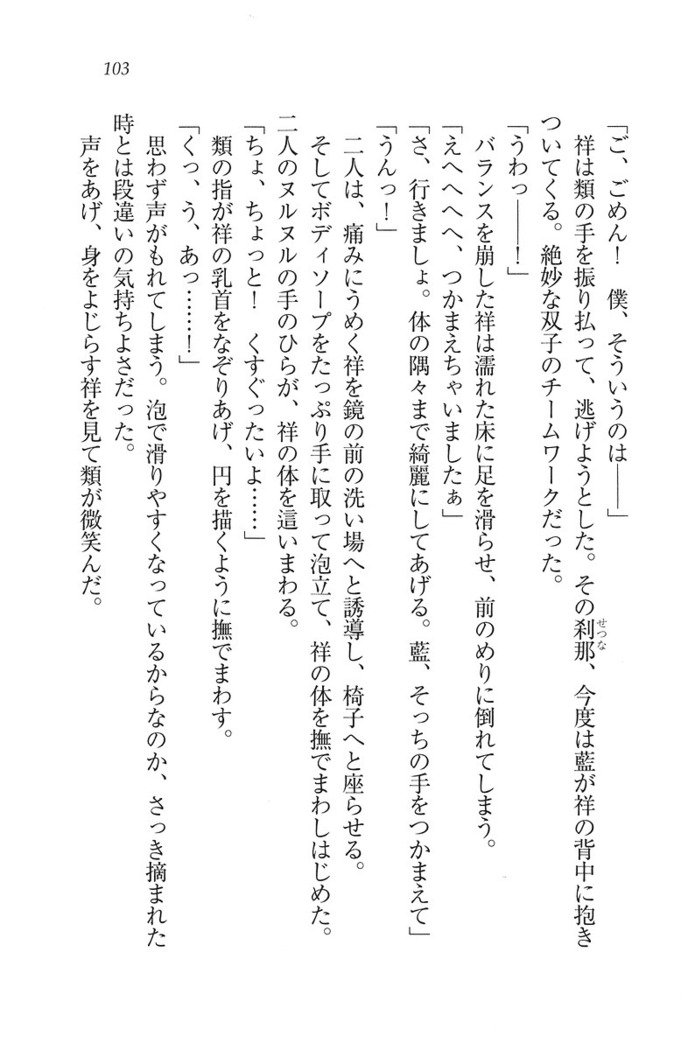 103
「ご、ごめん！　僕、そういうのは――」
　祥は類の手を振り払って、逃げようとした。その刹那、今度は藍が祥の背中に抱き
せつな
ついてくる。絶妙な双子のチームワークだった。
「うわっ――！」
　バランスを崩した祥は濡れた床に足を滑らせ、前のめりに倒れてしまう。
「えへへへへ、つかまえちゃいましたぁ」
「さ、行きましょ。体の隅々まで綺麗にしてあげる。藍、そっちの手をつかまえて」
「うんっ！」
　二人は、痛みにうめく祥を鏡の前の洗い場へと誘導し、椅子へと座らせる。
　そしてボディソープをたっぷり手に取って泡立て、祥の体を撫でまわしはじめた。
二人のヌルヌルの手のひらが、祥の体を這いまわる。
「ちょ、ちょっと！　くすぐったいよ……」
　類の指が祥の乳首をなぞりあげ、円を描くように撫でまわす。
「くっ、う、あっ……！」
　思わず声がもれてしまう。泡で滑りやすくなっているからなのか、さっき摘まれた
時とは段違いの気持ちよさだった。
　声をあげ、身をよじらす祥を見て類が微笑んだ。